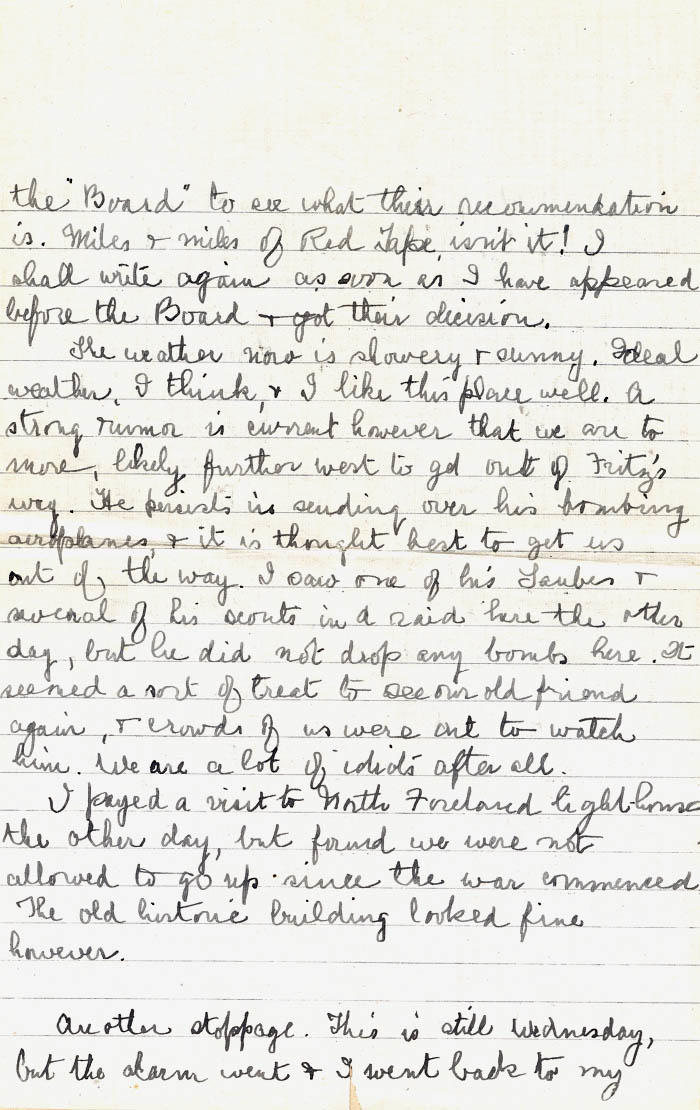 the "Board" to see what their recommendation
is. Miles & miles of Red Tape, isn't it! I
shall write again as soon as I have appeared
before the Board & got their dicision.
The weather now is showery & sunny. Ideal
weather, I think, & I like this place well. A
strong rumor is current however that we are to
move, likely further west to get out of Fritz's
way. He persists in sending over his bombing
aeroplanes, & it is thought best to get us
out of the way. I saw one of his Taubes &
several of his scouts in a raid here the other
day, but he did not drop any bombs here. It
seemed a sort of treat to see our old friend
again, & crowds of us were out to watch
him. We are a lot of idiots after all.
I payed a visit to North Foreland light-house
the other day, but found we were not
allowed to go up since the war commenced
The old historic building looked fine
however.
Another stoppage. This is still Wednesday,
but the alarm went & I went back to my